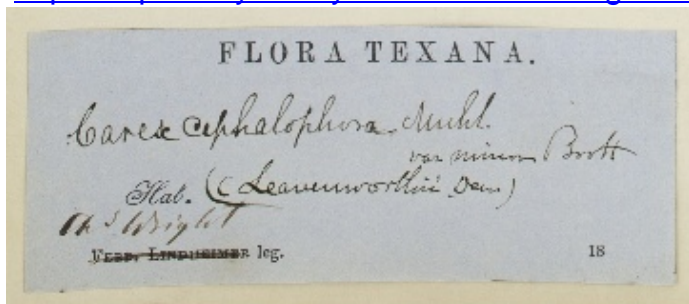 FLORA TEXANA.
Carex cephalophora. Muhl.
var minor Boott
Hab. (C Leavenworthii Dew)
Chs Wright
FERD. LINDHEIMER leg. 18